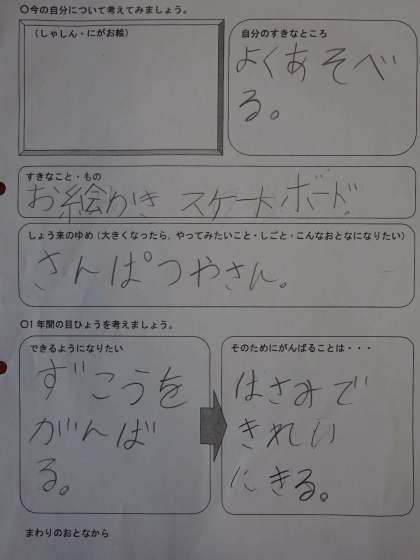 ○今の自分について考えてみましょう。
（しゃしん・にがお絵）
自分のすきなところ
よくあそべ
る。
すきなこと・もの
お絵かき スケートボード
しょう来のゆめ（大きくなったら、やってみたいこと・しごと・こんなおとなになりたい）
さんぱつやさん。
○1年間の目ひょうを考えましょう。
できるようになりたい
ずこうを
がんば
る。
そのためにがんばることは・・・
はさみで
きれい
にきる。
まわりのおとなから